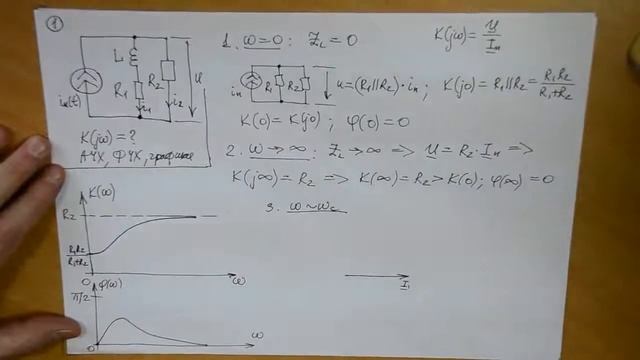 1
L
R₁
R₂
u
iᵢₙ(t)
i₂
K(jω) = ?
АЧХ, ФЧХ, графики
1. ω=0: Z_L = 0
K(jω) = U/Iᵢₙ
iᵢₙ
R₁
R₂
u = (R₁||R₂)·iᵢₙ; K(j0) = R₁||R₂ = R₁R₂/(R₁+R₂)
K(0) = K(j0); φ(0) = 0
2. ω→∞: Z_L→∞ => U = R₂·Iᵢₙ =>
K(j∞) = R₂ => K(∞) = R₂ > K(0); φ(∞) = 0
3. ω~ω_c
K(ω)
R₂
R₁R₂/(R₁+R₂)
0
ω
φ(ω)
π/2
0
ω
I₁